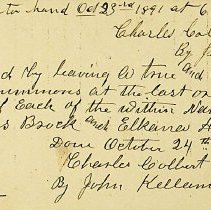 to hand Oct 23rd 1891 at 6
Charles Col
By J
d by leaving a true and
summons at the last or
f Each of the within Na
s Brock and Elkana H
Done October 24th
Charles Colbert
By John Kellam